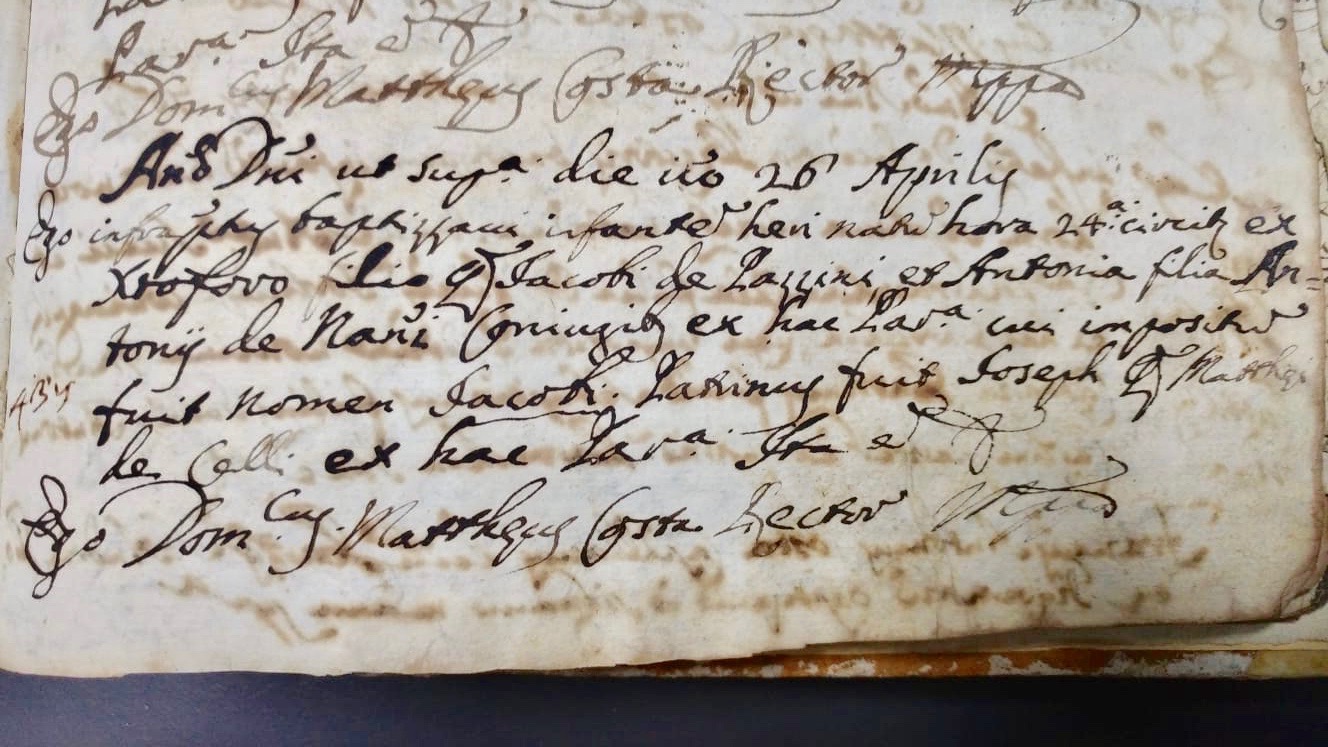 Par.a Ita e
Ego Dom.cus Mattheus Costa Rector Mppa
Anō Dn̄i ut sup.a die v̄o 26 Aprilis
Ego infraptus baptizzaui infantē heri natū hora 24.a circit ex
Xtoforo filio q Jacobi de Pazzini et Antonia filia An=
tonij de Nani Coniugib ex hac Par.a cui impositū
fuit nomen Jacobi. Patrinus fuit Joseph q Matthei
de Celli ex hac Par.a Ita e
Ego Dom.cus Mattheus Costa Rector Mppa